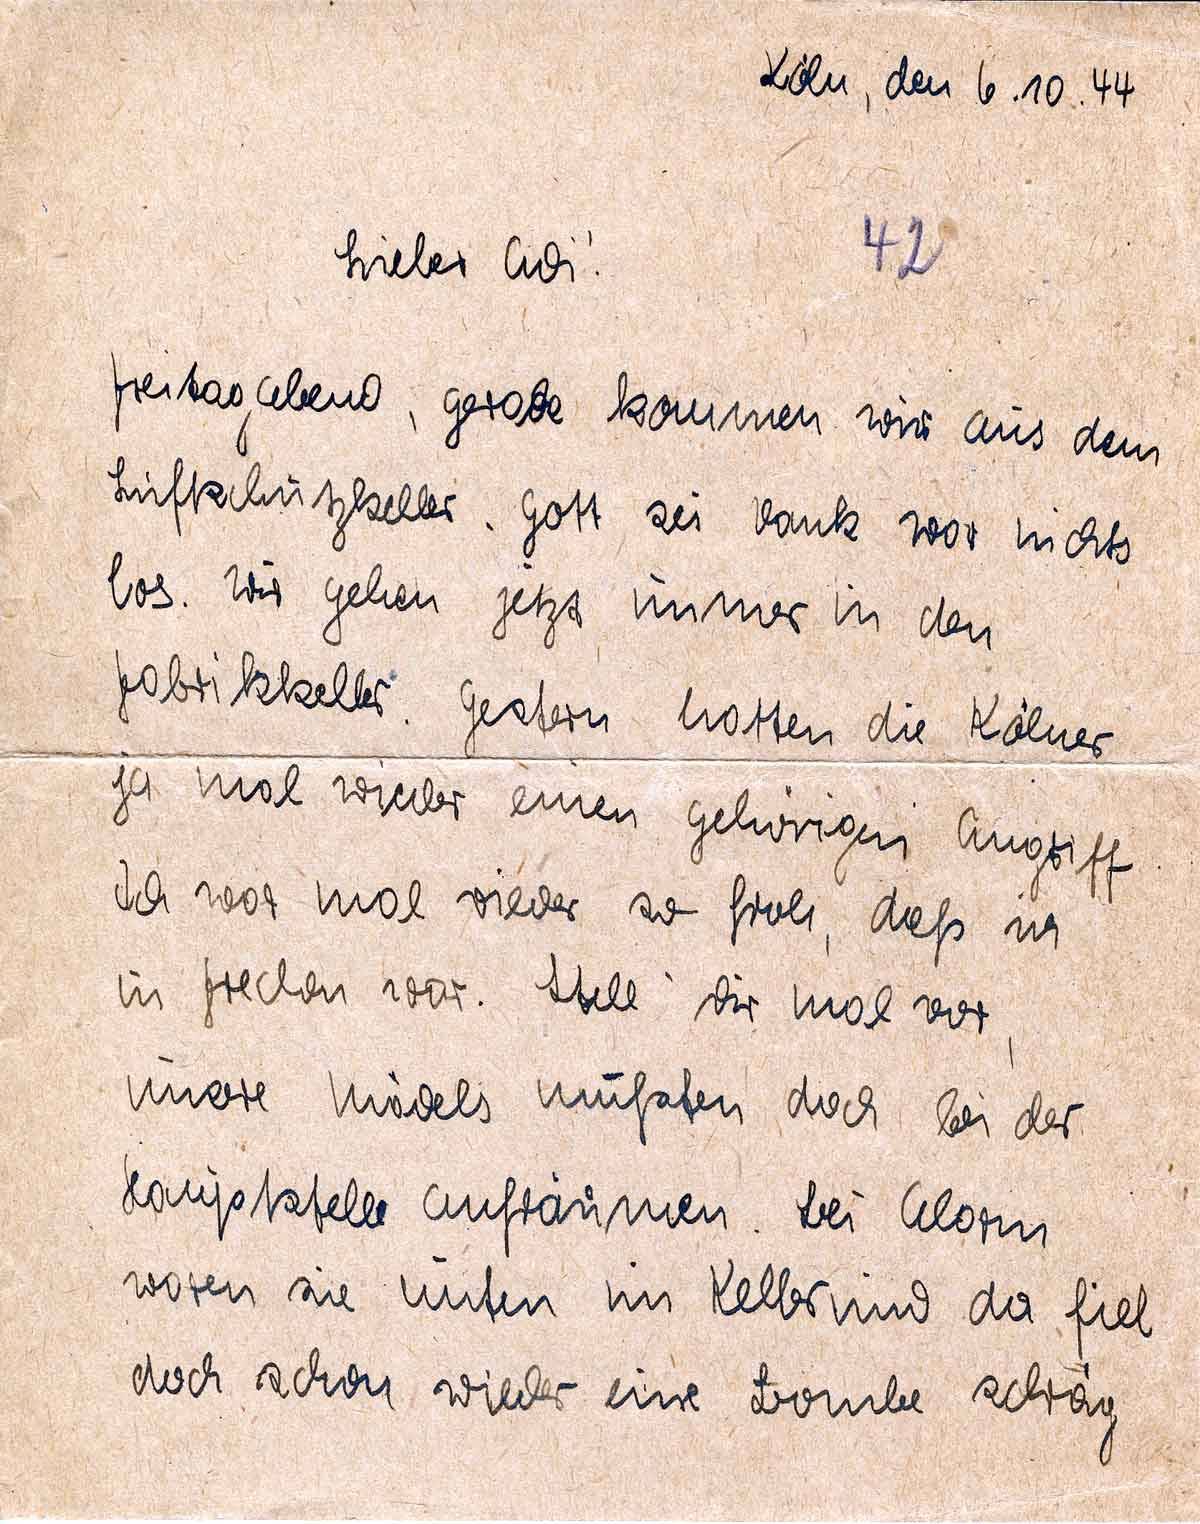 Köln, den 6.10.44
42
Lieber Adi!
Freitagabend, gerade kommen wir aus dem
Luftschutzkeller. Gott sei Dank war nichts
los. Wir gehen jetzt immer in den
Fabrikkeller. Gestern hatten die Kölner
ja mal wieder einen gehörigen Angriff
Ich war mal wieder so froh, daß ich
in Frechen war. Stell Dir mal vor,
unsere Mädels mußten doch bei der
Hauptstelle aufräumen. Bei Alarm
waren sie unten im Keller und da fiel
doch schon wieder eine Bombe schräg